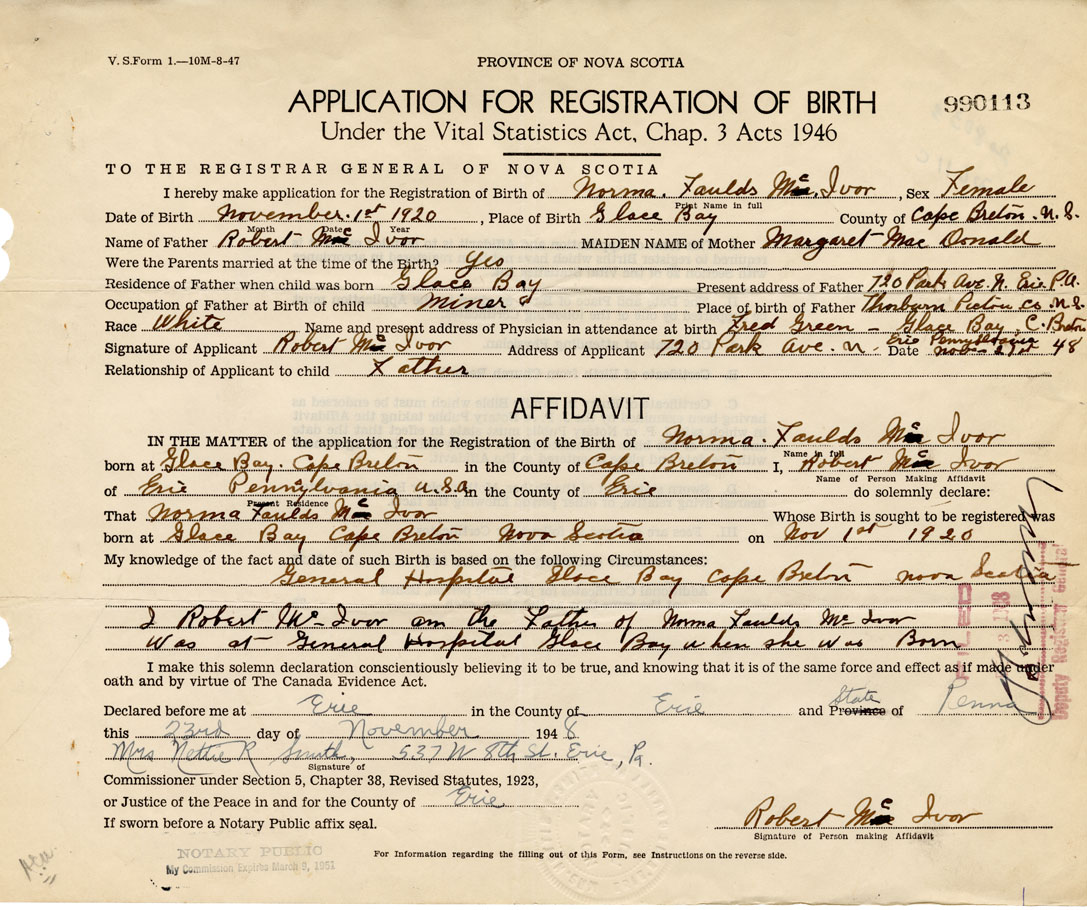 V. S. Form 1.—10M-8-47
PROVINCE OF NOVA SCOTIA
APPLICATION FOR REGISTRATION OF BIRTH
990113
Under the Vital Statistics Act, Chap. 3 Acts 1946
TO THE REGISTRAR GENERAL OF NOVA SCOTIA
I hereby make application for the Registration of Birth of Norma. Faulds Mc Ivor, Sex Female
Print Name in full
Date of Birth November. 1st 1920, Place of Birth Glace Bay County of Cape Breton. N. S.
Month Date Year
Name of Father Robert Mc Ivor MAIDEN NAME of Mother Margaret Mac Donald
Were the Parents married at the time of the Birth? Yes
Residence of Father when child was born Glace Bay Present address of Father 720 Park Ave. N. Erie P.A.
Occupation of Father at Birth of child Miner Place of birth of Father Thorburn Pictou Co. N.S.
Race White Name and present address of Physician in attendance at birth Fred Green - Glace Bay, C. Breton
Signature of Applicant Robert Mc Ivor Address of Applicant 720 Park Ave. N. Erie Pennsylvania Date Nov- 48
Relationship of Applicant to child Father
AFFIDAVIT
IN THE MATTER of the application for the Registration of the Birth of Norma. Faulds Mc Ivor
Name in full
born at Glace Bay. Cape Breton in the County of Cape Breton I, Robert Mc Ivor
Name of Person Making Affidavit
of Erie Pennsylvania U.S.A. in the County of Erie do solemnly declare:
Present Residence
That Norma Faulds Mc Ivor Whose Birth is sought to be registered was
born at Glace Bay Cape Breton Nova Scotia on Nov 1st 1920
My knowledge of the fact and date of such Birth is based on the following Circumstances:
General Hospital Glace Bay Cape Breton Nova Scotia
I Robert Mc Ivor am the Father of Norma Faulds Mc Ivor
Was at General Hospital Glace Bay when she was Born
I make this solemn declaration conscientiously believing it to be true, and knowing that it is of the same force and effect as if made under
oath and by virtue of The Canada Evidence Act.
Declared before me at Erie in the County of Erie and Province State of Penna
this 23rd day of November 1948
Mrs Nettie R Smith, 537 W 8th St. Erie, Pa.
Signature of
Commissioner under Section 5, Chapter 38, Revised Statutes, 1923,
or Justice of the Peace in and for the County of Erie
If sworn before a Notary Public affix seal.
Robert Mc Ivor
Signature of Person making Affidavit
For Information regarding the filling out of this Form, see Instructions on the reverse side.
NOTARY PUBLIC
My Commission Expires March 9, 1951
FILED
Deputy Registrar General